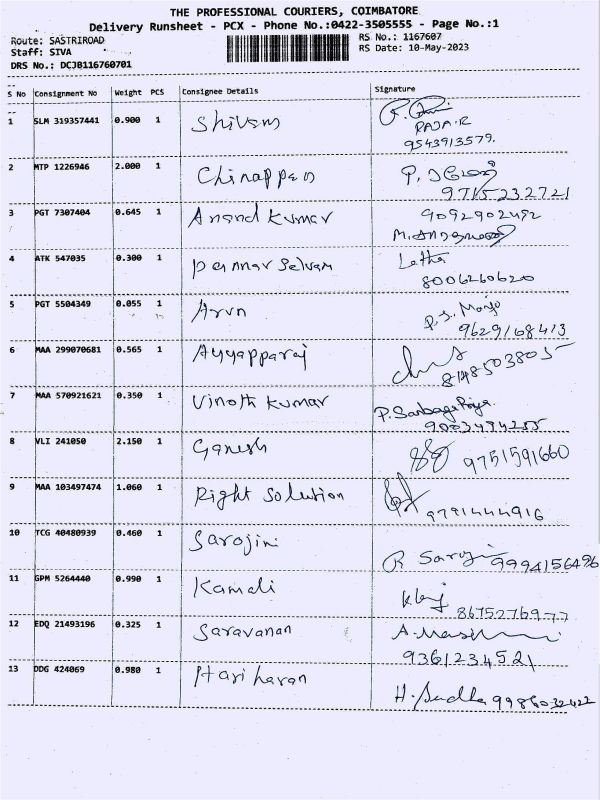 THE PROFESSIONAL COURIERS, COIMBATORE
Delivery Runsheet - PCX - Phone No.:0422-3505555 - Page No.:1
Route: SASTRIROAD
Staff: SIVA
DRS No.: DCJB116760701
RS No.: 1167607
RS Date: 10-May-2023
S No Consignment No Weight PCS Consignee Details Signature
1 SLM 319357441 0.900 1 Shivam
RAJA.R
9543913579.
2 MTP 1226946 2.000 1 Chinappan
9715232721
3 PGT 7307404 0.645 1 Anand Kumar 9092902492
4 ATK 547035 0.300 1 pennar Selvam Letha
8006260620
5 PGT 5504349 0.055 1 Arun
9629168413
6 MAA 299070681 0.565 1 Ayyapparaj
8148503805
7 MAA 570921621 0.350 1 Vinoth Kumar
8 VLI 241050 2.150 1 Ganesh 9751591660
9 MAA 103497474 1.060 1 Right Solution
9791444916
10 TCG 40480939 0.460 1 Sarojini
9994156496
11 GPM 5264440 0.990 1 Kamali
8675276977
12 EDQ 21493196 0.325 1 Saravanan
9361234521
13 DDG 424069 0.980 1 Hari haran
H. Sudha